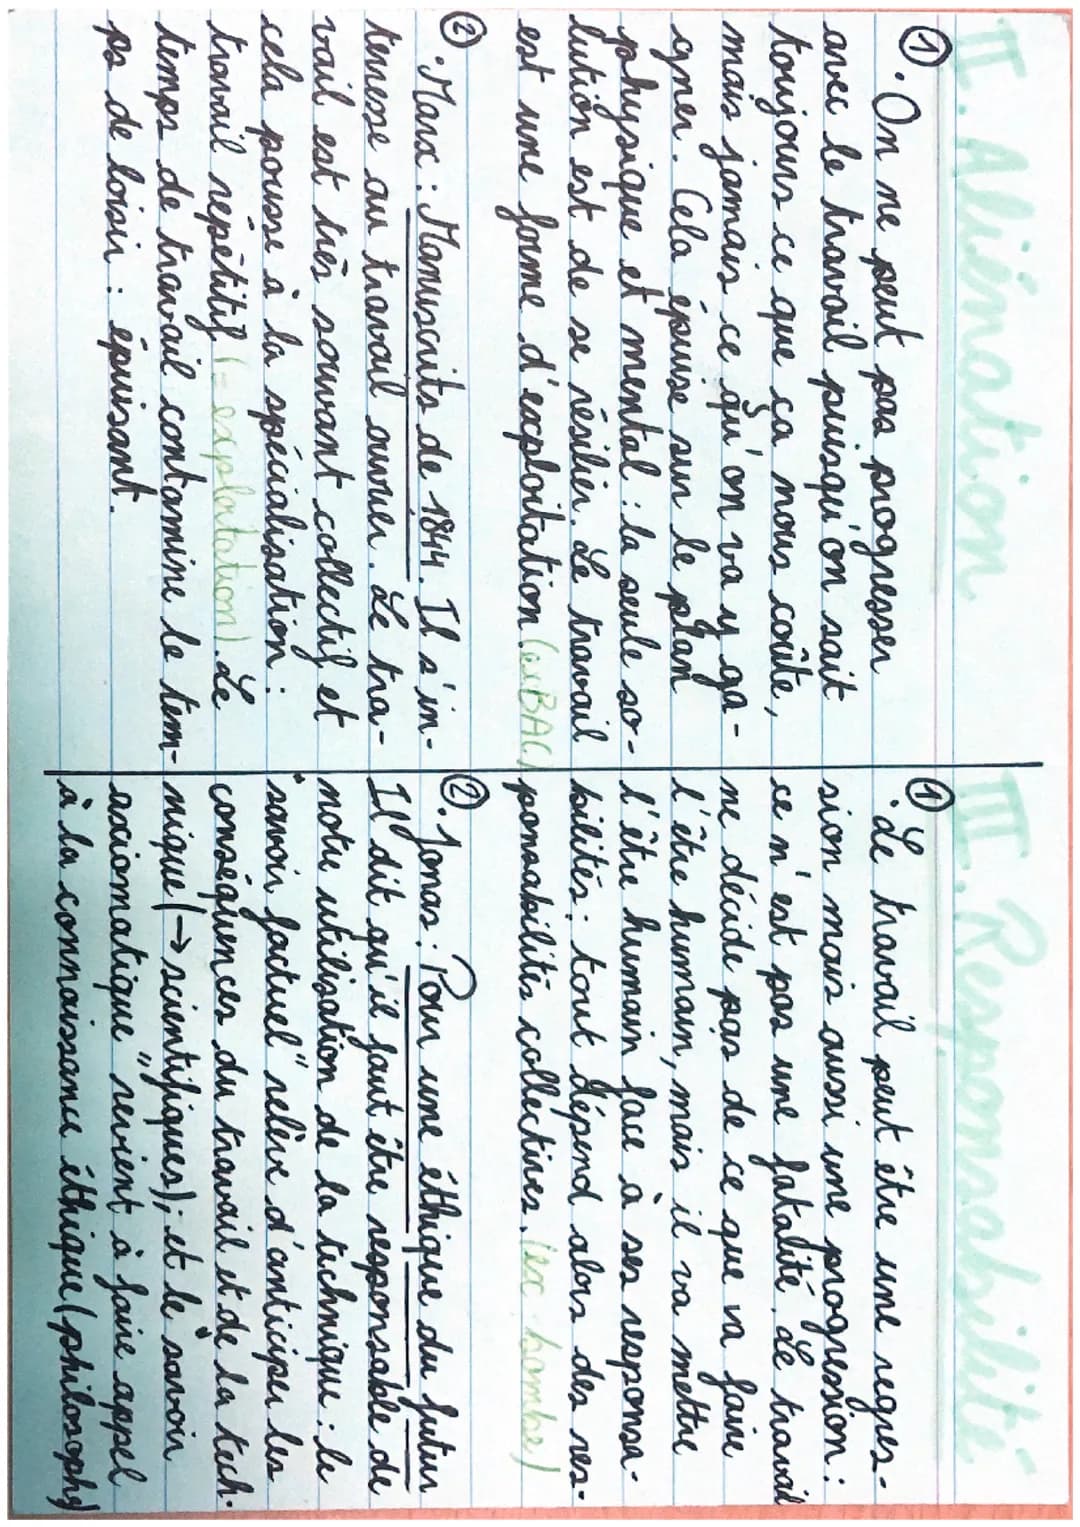 II. Aliénation
① · On ne peut pas progresser
avec le travail puisqu'on sait
toujours ce que ça nous coûte,
mais jamais ce qu'on va y ga-
gner. Cela épuise sur le plan
physique et mental : la seule so-
lution est de se résilier. Le travail
est une forme d'exploitation (ex BAC)
② · Marx : Manuscrits de 1844. Il s'in-
teresse au travail ouvrier. Le tra-
vail est très souvant collectif et
cela pousse à la spécialisation :
travail répétitif (= exploitation). Le
temps de travail contamine le tem-
ps de loisir : épuisant.
III. Responsabilité
① · Le travail peut être une regres-
sion mais aussi une progression :
ce n'est pas une fatalité. Le travail
ne décide pas de ce que va faire
l'être humain, mais il va mettre
l'être humain face à ses responsa-
bilités : tout dépend alors des res-
ponsabilités collectives. (ex : bombe)
② · Jonas : Pour une éthique du futur
Il dit qu'il faut être responsable de
notre utilisation de la technique : le
"savoir factuel" relève d'anticiper les
conséquences du travail et de la tech-
nique (→ scientifiques); et le "savoir
axiomatique" revient à faire appel
à la connaissance éthique (philosophe)